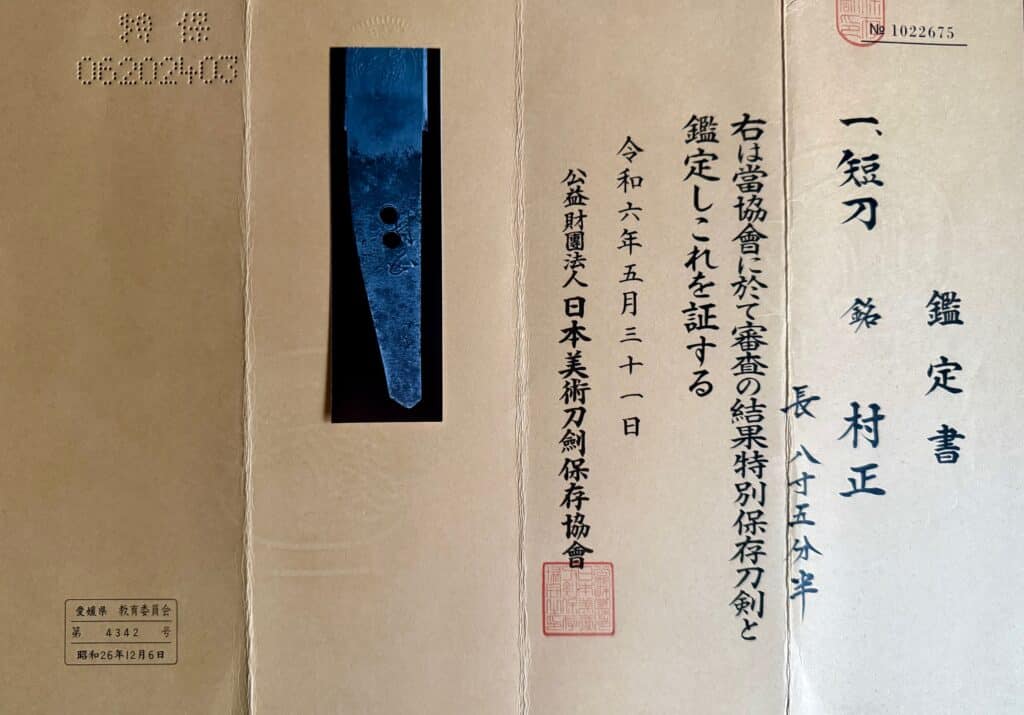 № 1022675
鑑定書
一、短刀 銘 村正
長 八寸五分半
右は當協會に於て審査の結果特別保存刀剣と
鑑定しこれを証する
令和六年五月三十一日
公益財團法人 日本美術刀劍保存協會
特保
06202403
愛媛県 教育委員会
第 4342 号
昭和26年12月6日